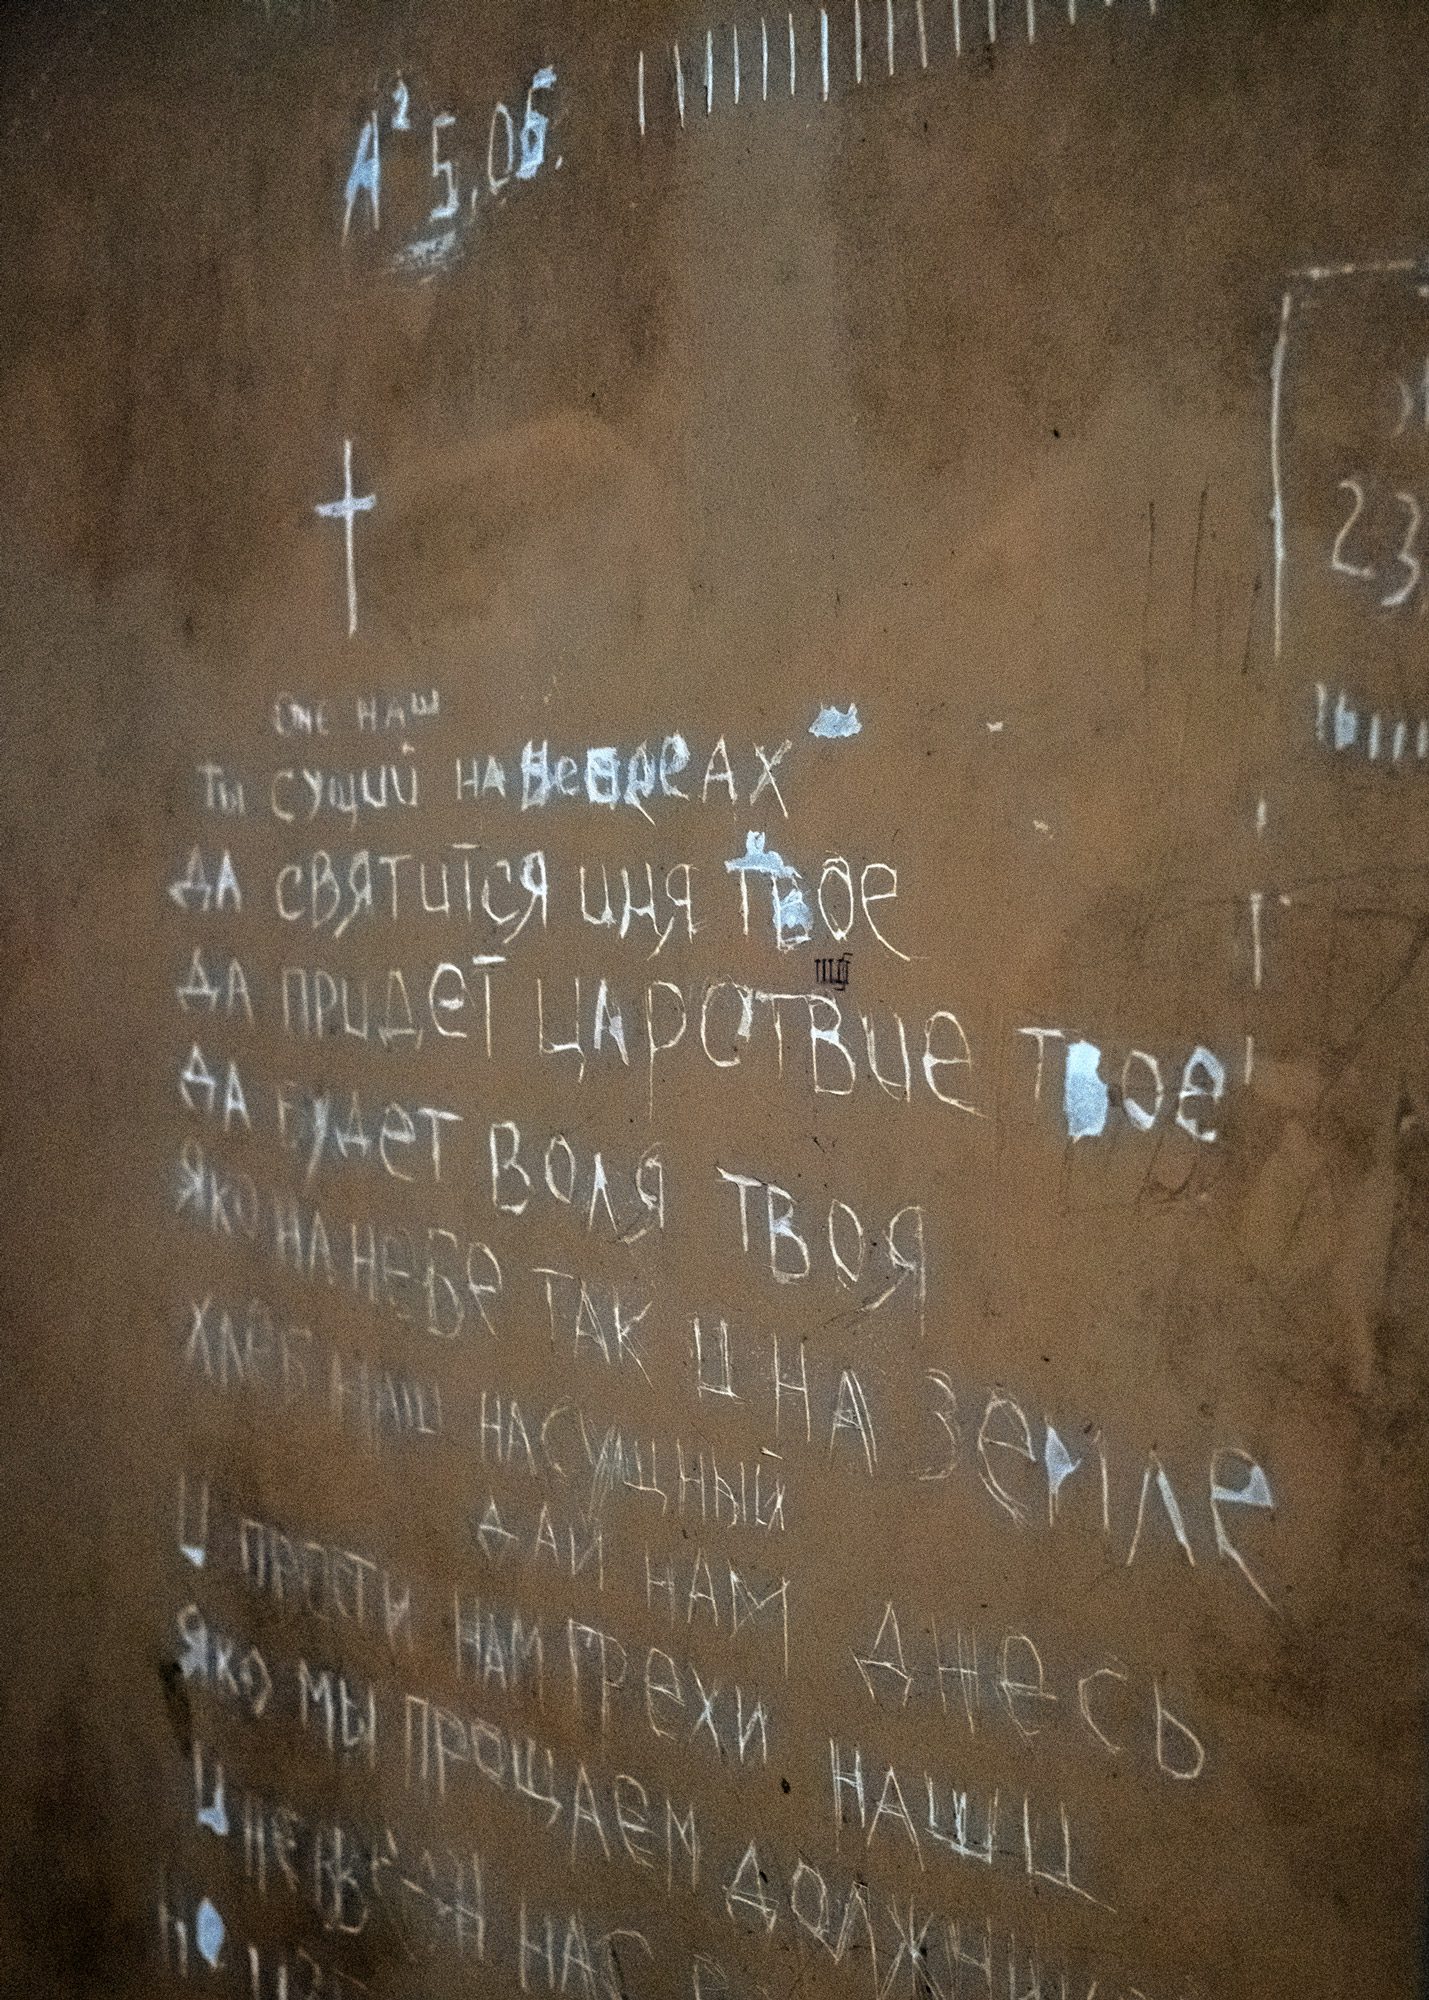 А² 5,06.
23
Оче наш
ты сущий на небесах
да святится имя твое
да придет царствие твое
да будет воля твоя
яко на небе так и на земле
хлеб наш насущный
дай нам днесь
и прости нам грехи наши
яко мы прощаем должни
и не вв нас